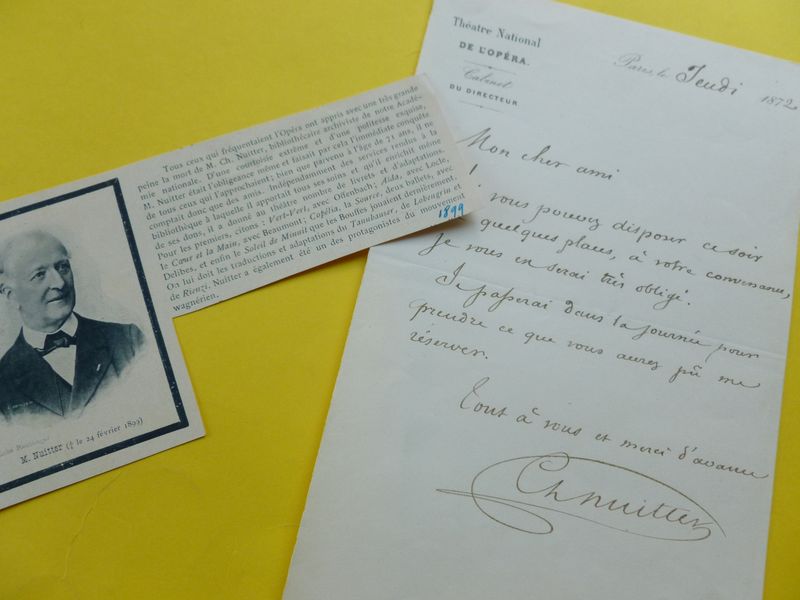 Tous ceux qui fréquentaient l'Opéra ont appris avec une très grande
peine la mort de M. Ch. Nuitter, bibliothécaire archiviste de notre Acadé-
mie nationale. D'une courtoisie extrême et d'une politesse exquise,
M. Nuitter était l'obligeance même et faisait par cela l'immédiate conquête
de tous ceux qui l'approchaient; bien que parvenu à l'âge de 71 ans, il ne
comptait donc que des amis. Indépendamment des services rendus à la
bibliothèque à laquelle il apportait tous ses soins et qu'il enrichit même
de ses dons, il a donné au théâtre nombre de livrets et d'adaptations.
Pour les premiers, citons : Vert-Vert, avec Offenbach; Aïda, avec Locle,
le Cœur et la Main, avec Beaumont; Copélia, la Source, deux ballets, avec
Delibes, et enfin le Soleil de Minuit que les Bouffes jouaient dernièrement.
On lui doit les traductions et adaptations du Tannhauser, de Lohengrin et
de Rienzi. Nuitter a également été un des protagonistes du mouvement
wagnérien.
1899
M. Nuitter († le 24 février 1899)
Théatre National
DE L'OPÉRA.
Cabinet
DU DIRECTEUR
Paris, le Jeudi 1872
Mon cher ami
vous pouvez disposer ce soir
quelques places, à votre convenance,
je vous en serai très obligé.
Je passerai dans la journée pour
prendre ce que vous aurez pû me
réserver.
Tout à vous et merci d'avance
Ch Nuitter